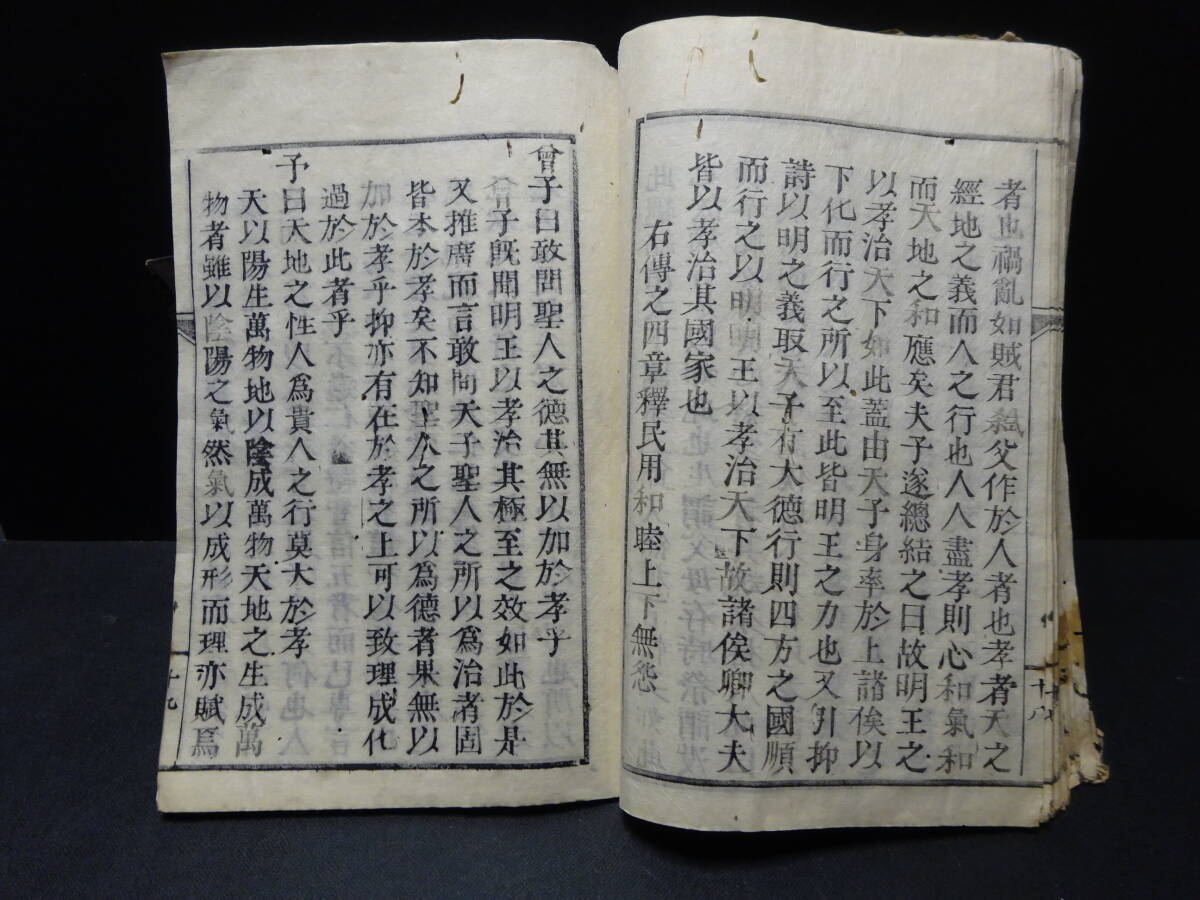 者也禍亂如賊君弑父作於人者也孝者天之
經地之義而人之行也人人盡孝則心和氣和
而天地之和應矣夫子遂總結之曰故明王之
以孝治天下如此蓋由天子身率於上諸侯以
下化而行之所以至此皆明王之力也又引抑
詩以明之義取天子有大德行則四方之國順
而行之以明明王以孝治天下故諸侯卿大夫
皆以孝治其國家也
右傳之四章釋民用和睦上下無怨
十八
曾子曰敢問聖人之德其無以加於孝乎
曾子既聞明王以孝治其極至之效如此於是
又推廣而言敢問天子聖人之所以爲治者固
皆本於孝矣不知聖人之所以爲德者果無以
加於孝乎抑亦有在於孝之上可以致理成化
過於此者乎
子曰天地之性人爲貴人之行莫大於孝
天以陽生萬物地以陰成萬物天地之生成萬
物者雖以陰陽之氣然氣以成形而理亦賦焉
十九